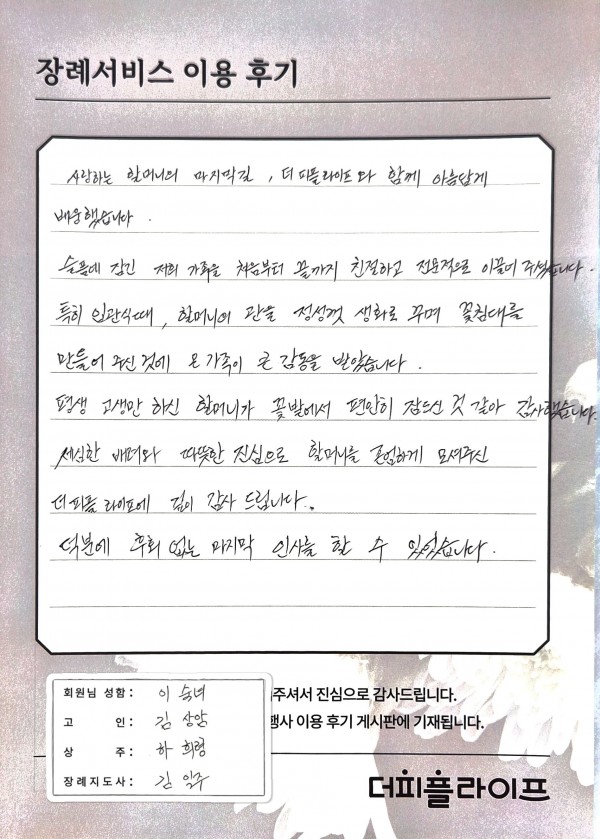 장례서비스 이용 후기
사랑하는 할머니의 마지막길, 더피플라이프와 함께 아름답게
배웅했습니다.
슬픔에 잠긴 저희 가족을 처음부터 끝까지 친절하고 전문적으로 이끌어 주셨습니다.
특히 입관식때, 할머니의 관을 정성껏 생화로 꾸며 꽃침대를
만들어 주신 것에 온 가족이 큰 감동을 받았습니다.
평생 고생만 하신 할머니가 꽃밭에서 편안히 잠드신 것 같아 감사했습니다.
세심한 배려와 따뜻한 진심으로 할머니를 존엄하게 모셔주신
더피플 라이프에 깊이 감사 드립니다.
덕분에 후회 없는 마지막 인사를 할 수 있었습니다.
회원님 성함 : 이숙녀
고 인 : 김상암
상 주 : 하희령
장례지도사 : 김일주
주셔서 진심으로 감사드립니다.
행사 이용 후기 게시판에 기재됩니다.
더피플라이프